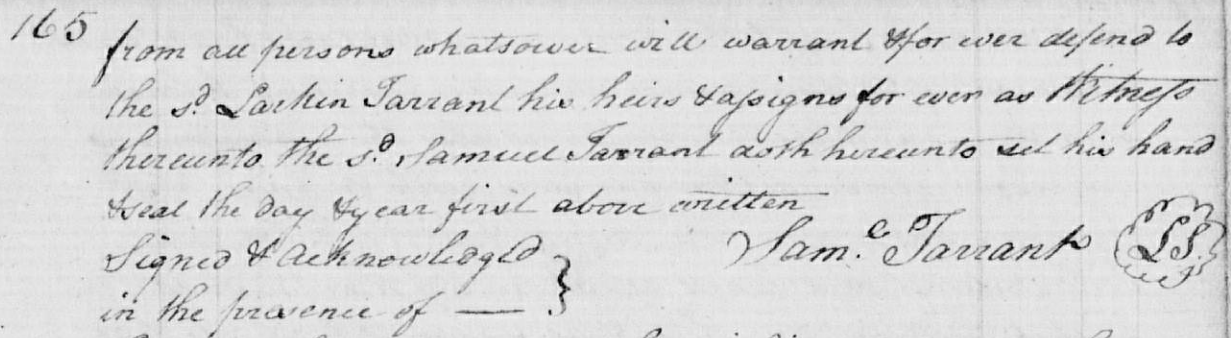 165
from all persons whatsower will warrant & for ever defend to
the sd. Larkin Tarrant his heirs & assigns for ever as Witness
thereunto the sd. Samuel Tarrant doth hereunto set his hand
& seal the day & year first above written
Signed & Acknowledged
in the presence of —
Saml. Tarrant LS.